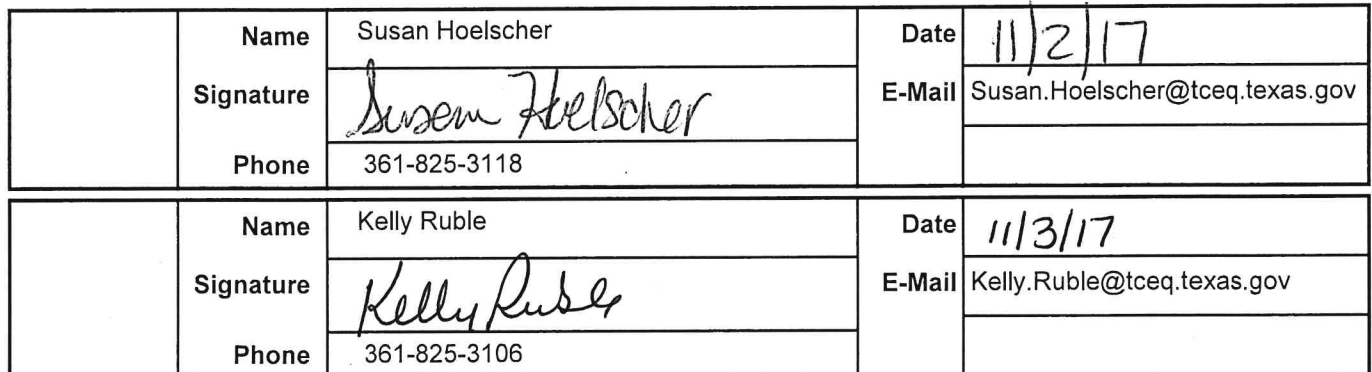 Name Susan Hoelscher Date 11/2/17
Signature Susan Hoelscher E-Mail Susan.Hoelscher@tceq.texas.gov
Phone 361-825-3118
Name Kelly Ruble Date 11/3/17
Signature Kelly Ruble E-Mail Kelly.Ruble@tceq.texas.gov
Phone 361-825-3106